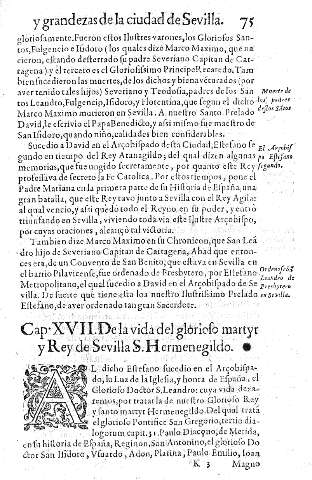 y grandezas de la ciudad de Sevilla. 75
gloriosamente. Fueron estos Ilustres varones, los Gloriosos San-
tos, Fulgencio e Isidoro (los quales dizo Marco Maximo, que na-
cieron, estando desterrado su padre Severiano Capitan de Car-
tagena) y el tercero es el Gloriosissimo Principe Recaredo. Tam
bien sucedieron las muertes, de los dichos y bienaventurados (por
aver tenido tales hijos) Severiano y Teodosia, padres de los San
tos Leandro, Fulgencio, Isidoro, y Florentina, que segun el dicho
Marco Maximo murieron en Sevilla. A nuestro Santo Prelado
David, le escrivio el Papa Benedicto, y assi mismo fue maestro de
San Isidoro, quando niño, calidades bien considerables.
Muerte de
los padres
destos Sātos
Sucedio a David en el Arçobispado desta Ciudad, Estefano se
gundo en tiempo del Rey Atanagildo; del qual dizen algunas
memorias, que fue ungido secretamente, por quanto este Rey
professava de secreto la Fè Catolica. Por estos tiempos, pone el
Padre Mariana en la primera parte de su Historia de España, una
gran batalla, que este Rey tuvo junto a Sevilla con el Rey Agila:
al qual vencio, y assi quedò todo el Reyno en su poder, y entrò
triunfando en Sevilla, viviendo todavia este Ilustre Arçobispo,
por cuyas oraciones, alcançò tal vitoria.
El Arçobis
po Estefano
segundo.
Tambien dize Marco Maximo en su Chronicon, que San Leā
dro hijo de Severiano Capitan de Cartagena, Abad que enton-
ces era, de un Convento de San Benito, que estava en Sevilla en
el barrio Pilavicense, fue ordenado de Presbytero, por Estefano
Metropolitano, el qual sucedio a David en el Arçobispado de Se-
villa. De suerte que tiene esta loa nuestro Ilustrissimo Prelado
Estefano, de aver ordenado tan gran Sacerdote.
Ordenose S.
Leandro de
Presbytero
en Sevilla.
Cap. XVII. De la vida del glorioso martyr
y Rey de Sevilla S. Hermenegildo.
AL dicho Estefano sucedio en el Arçobispa-
do, la Luz de la Iglesia, y honra de España, el
Glorioso Doctor S. Leandro: cuya vida dexa-
remos, por tratar la de nuestro Glorioso Rey
y santo martyr Hermenegildo. Del qual trata
el glorioso Pontifice San Gregorio, tercio dia-
logorum capit. 31. Paulo Diacono, de Merida,
en su historia de España, Reginon, San Antonino, el glorioso Do
ctor San Isidoro, Vsuardo, Adon, Platina, Paulo Emilio, Ioan
K 3 Magno